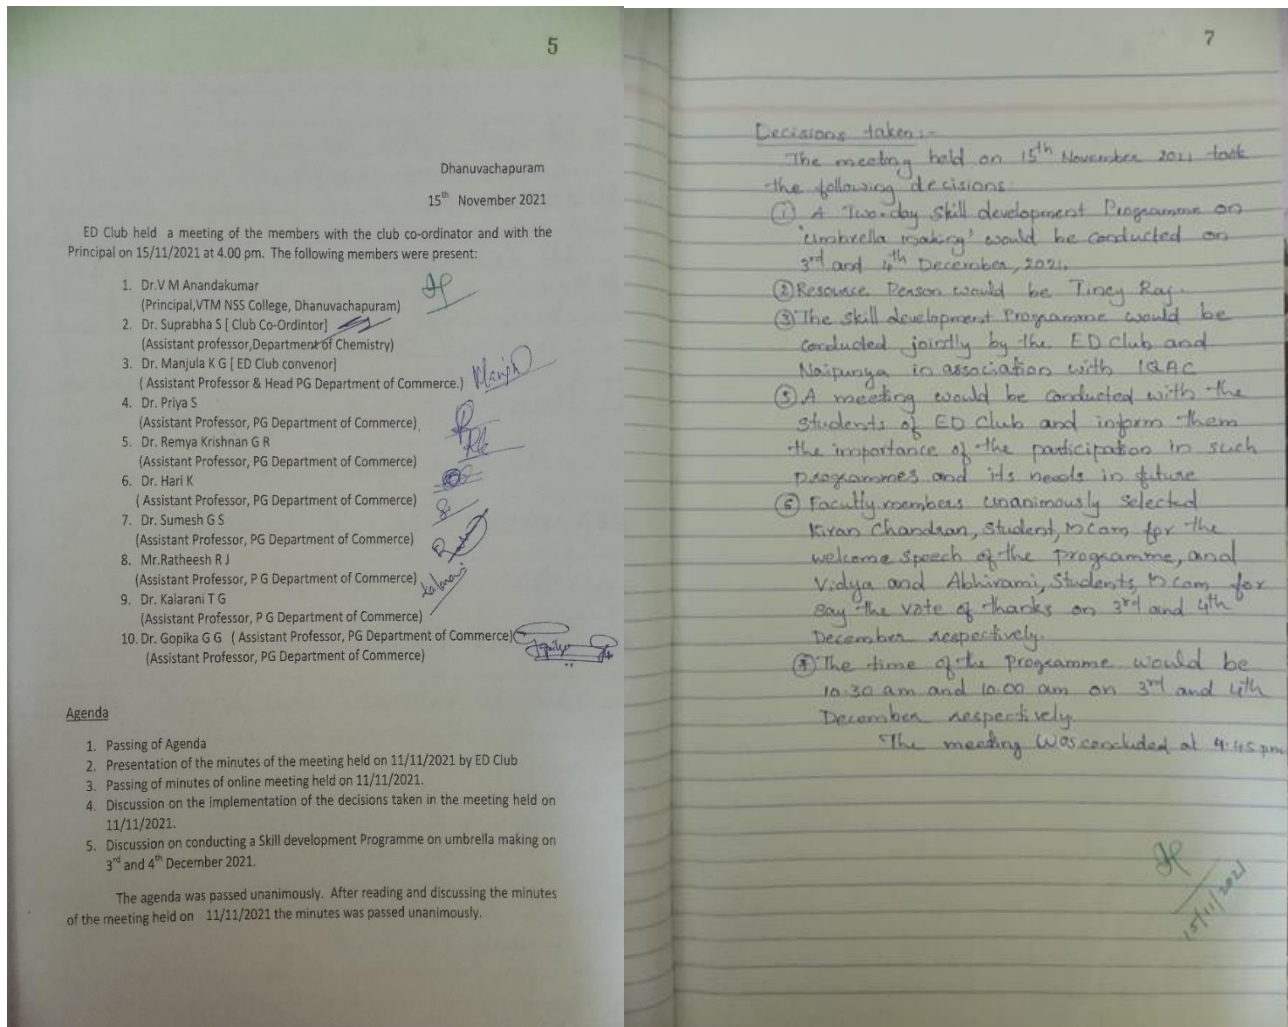 5
Dhanuvachapuram
15th November 2021
ED Club held a meeting of the members with the club co-ordinator and with the
Principal on 15/11/2021 at 4.00 pm. The following members were present:
1. Dr.V M Anandakumar
(Principal,VTM NSS College, Dhanuvachapuram)
2. Dr. Suprabha S [ Club Co-Ordintor]
(Assistant professor,Department of Chemistry)
3. Dr. Manjula K G [ ED Club convenor]
( Assistant Professor & Head PG Department of Commerce.)
4. Dr. Priya S
(Assistant Professor, PG Department of Commerce)
5. Dr. Remya Krishnan G R
(Assistant Professor, PG Department of Commerce)
6. Dr. Hari K
( Assistant Professor, PG Department of Commerce)
7. Dr. Sumesh G S
(Assistant Professor, PG Department of Commerce)
8. Mr.Ratheesh R J
(Assistant Professor, P G Department of Commerce)
9. Dr. Kalarani T G
(Assistant Professor, P G Department of Commerce)
10. Dr. Gopika G G ( Assistant Professor, PG Department of Commerce)
(Assistant Professor, PG Department of Commerce)
Agenda
1. Passing of Agenda
2. Presentation of the minutes of the meeting held on 11/11/2021 by ED Club
3. Passing of minutes of online meeting held on 11/11/2021.
4. Discussion on the implementation of the decisions taken in the meeting held on
11/11/2021.
5. Discussion on conducting a Skill development Programme on umbrella making on
3rd and 4th December 2021.
The agenda was passed unanimously. After reading and discussing the minutes
of the meeting held on 11/11/2021 the minutes was passed unanimously.
7
Decisions taken:-
The meeting held on 15th November 2021 took
the following decisions:
① A Two-day Skill development Programme on
'Umbrella making' would be conducted on
3rd and 4th December, 2021.
② Resource Person would be Tincy Raj.
③ The skill development Programme would be
conducted jointly by the ED Club and
Naipunya in association with IQAC
⑤ A meeting would be conducted with the
students of ED Club and inform them
the importance of the participation in such
programmes and its needs in future
⑥ Faculty members unanimously selected
Kiran Chandran, Student, M Com for the
welcome speech of the programme, and
Vidya and Abhirami, Students, M com for
say the vote of thanks on 3rd and 4th
December respectively.
⑦ The time of the Programme would be
10.30 am and 10.00 am on 3rd and 4th
December respectively
The meeting was concluded at 4.45 pm
15/11/2021